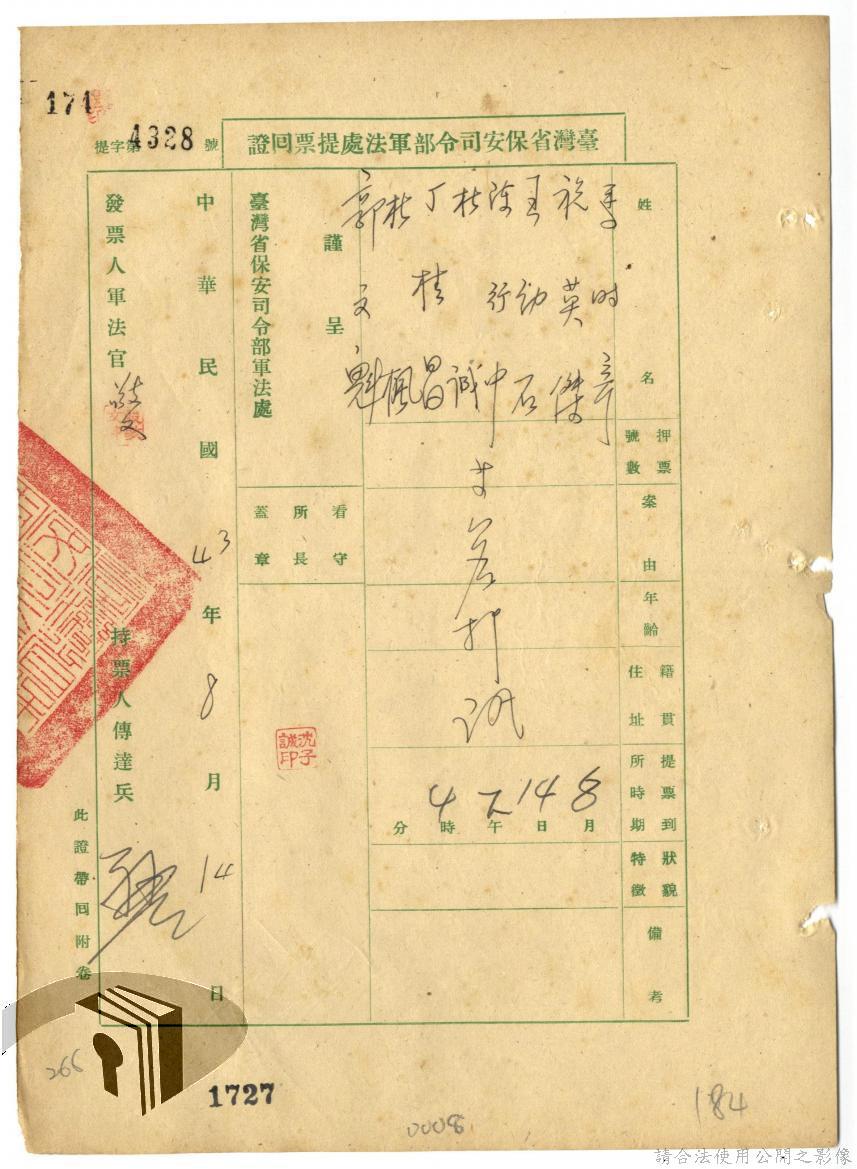 171
臺灣省保安司令部軍法處提票回證
提字第4328號
姓名
時
祝英傑
王幼石
陳行中
杜誠
丁桂昌
杜楓
郭文魁
押票號數
案由
年齡
籍貫住址
提票到所時期
8月14日午4時分
狀貌特徵
備考
謹呈
臺灣省保安司令部軍法處
看守所長蓋章
沈子誠印
中華民國43年8月14日
發票人軍法官
持票人傳達兵
此證帶回附卷
266
1727
0008
184
請合法使用公開之影像